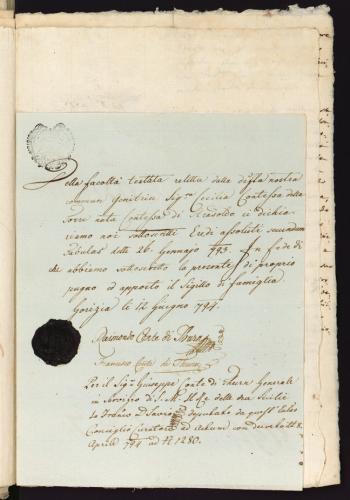 Della facoltà testata relitta dalla diffta nostra
commun Genitrice Sigra Cecilia Contessa della
Torre nata Contessa di ... si dichia-
riamo noi sottoscritti Eredi assoluti secundum
tabulas delli 26. Gennajo 793. In fede di
che abbiamo sottoscritto la presente di proprio
pugno ed apposto il Sigillo di famiglia.
Gorizia li 12 Giugno 794.
Raimondo Conte di Thurn
Francesco Conte di Thurn
Per il Sigr Giuseppe Conte di Thurn Generale
in Servizio di S. M. il Re delle due Sicilie
deputato da quest'
Consiglio Curatore ad
Aprile 794 ad N 1280.